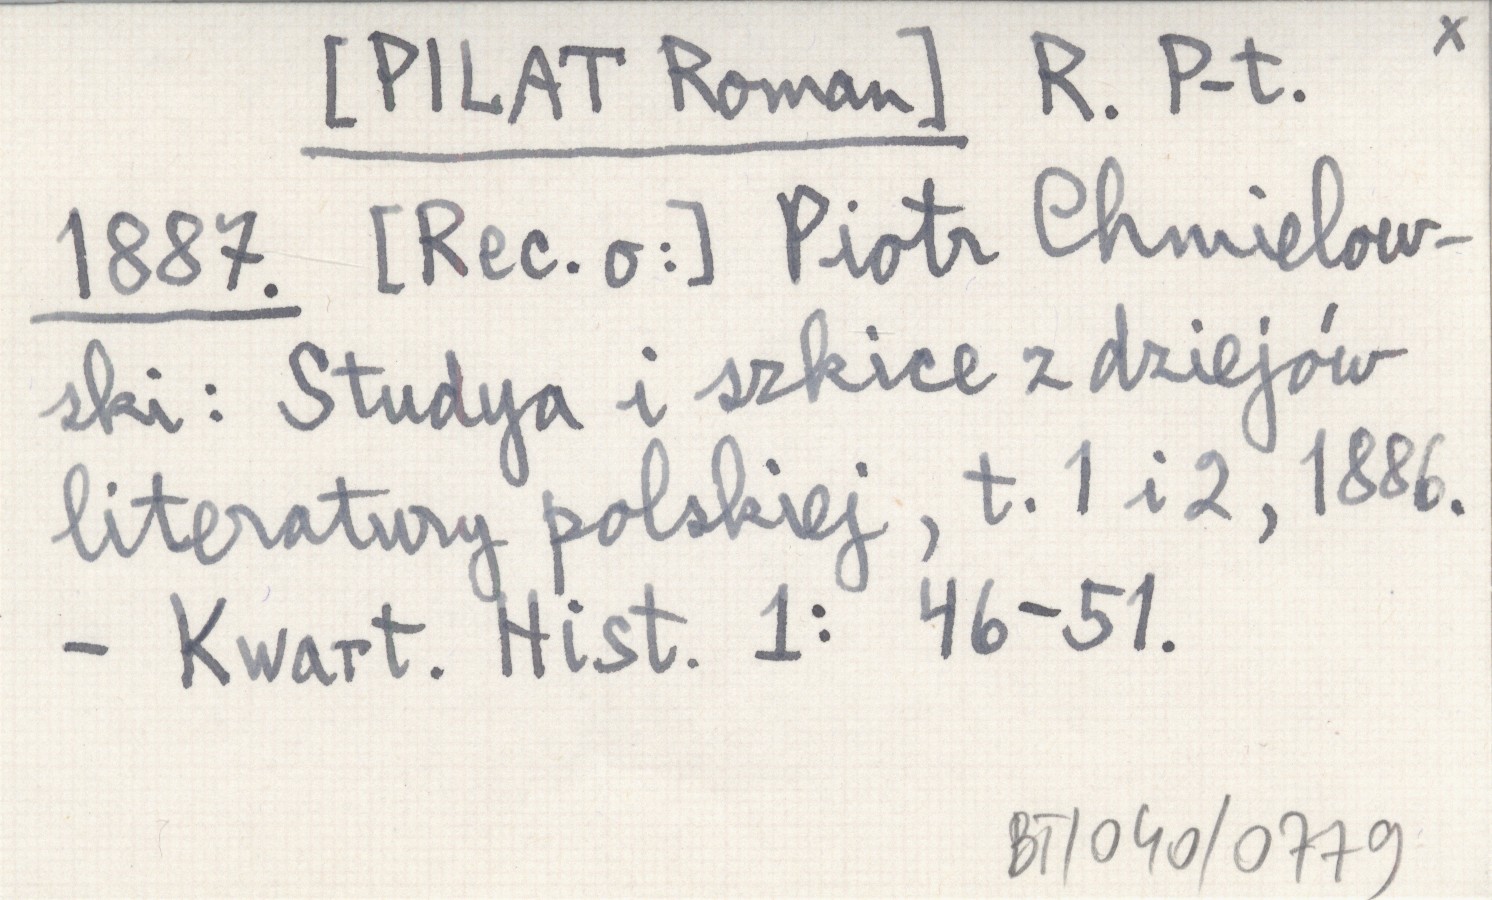 [PILAT Roman] R. P-t. x
1887. [Rec. o:] Piotr Chmielow-
ski: Studya i szkice z dziejów
literatury polskiej, t. 1 i 2, 1886.
- Kwart. Hist. 1: 46-51.
BT/040/0779